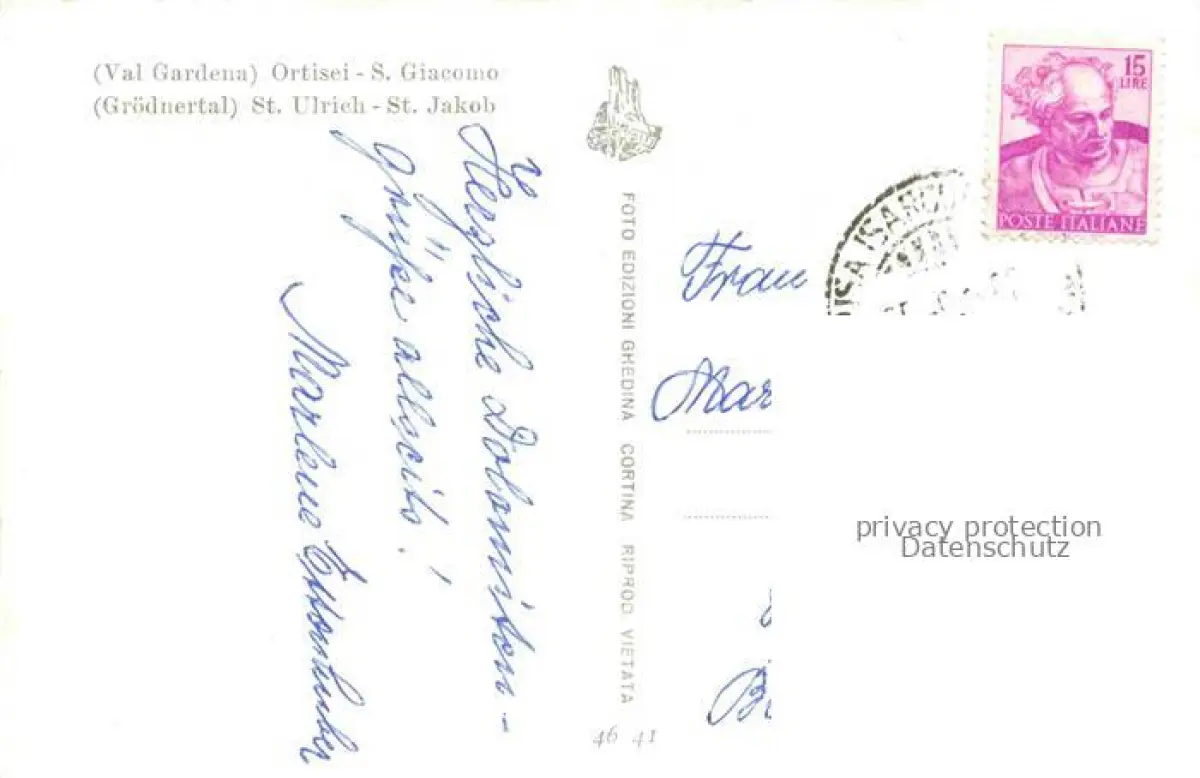 (Val Gardena) Ortisei - S. Giacomo
(Grödnertal) St. Ulrich - St. Jakob
Herzliche Dolomiten-
grüße allseits!
Marlene
FOTO EDIZIONI GHEDINA CORTINA RIPROD VIETATA
46 41
15
LIRE
POSTE ITALIANE
ISARCO
Frau
Mar
privacy protection
Datenschutz